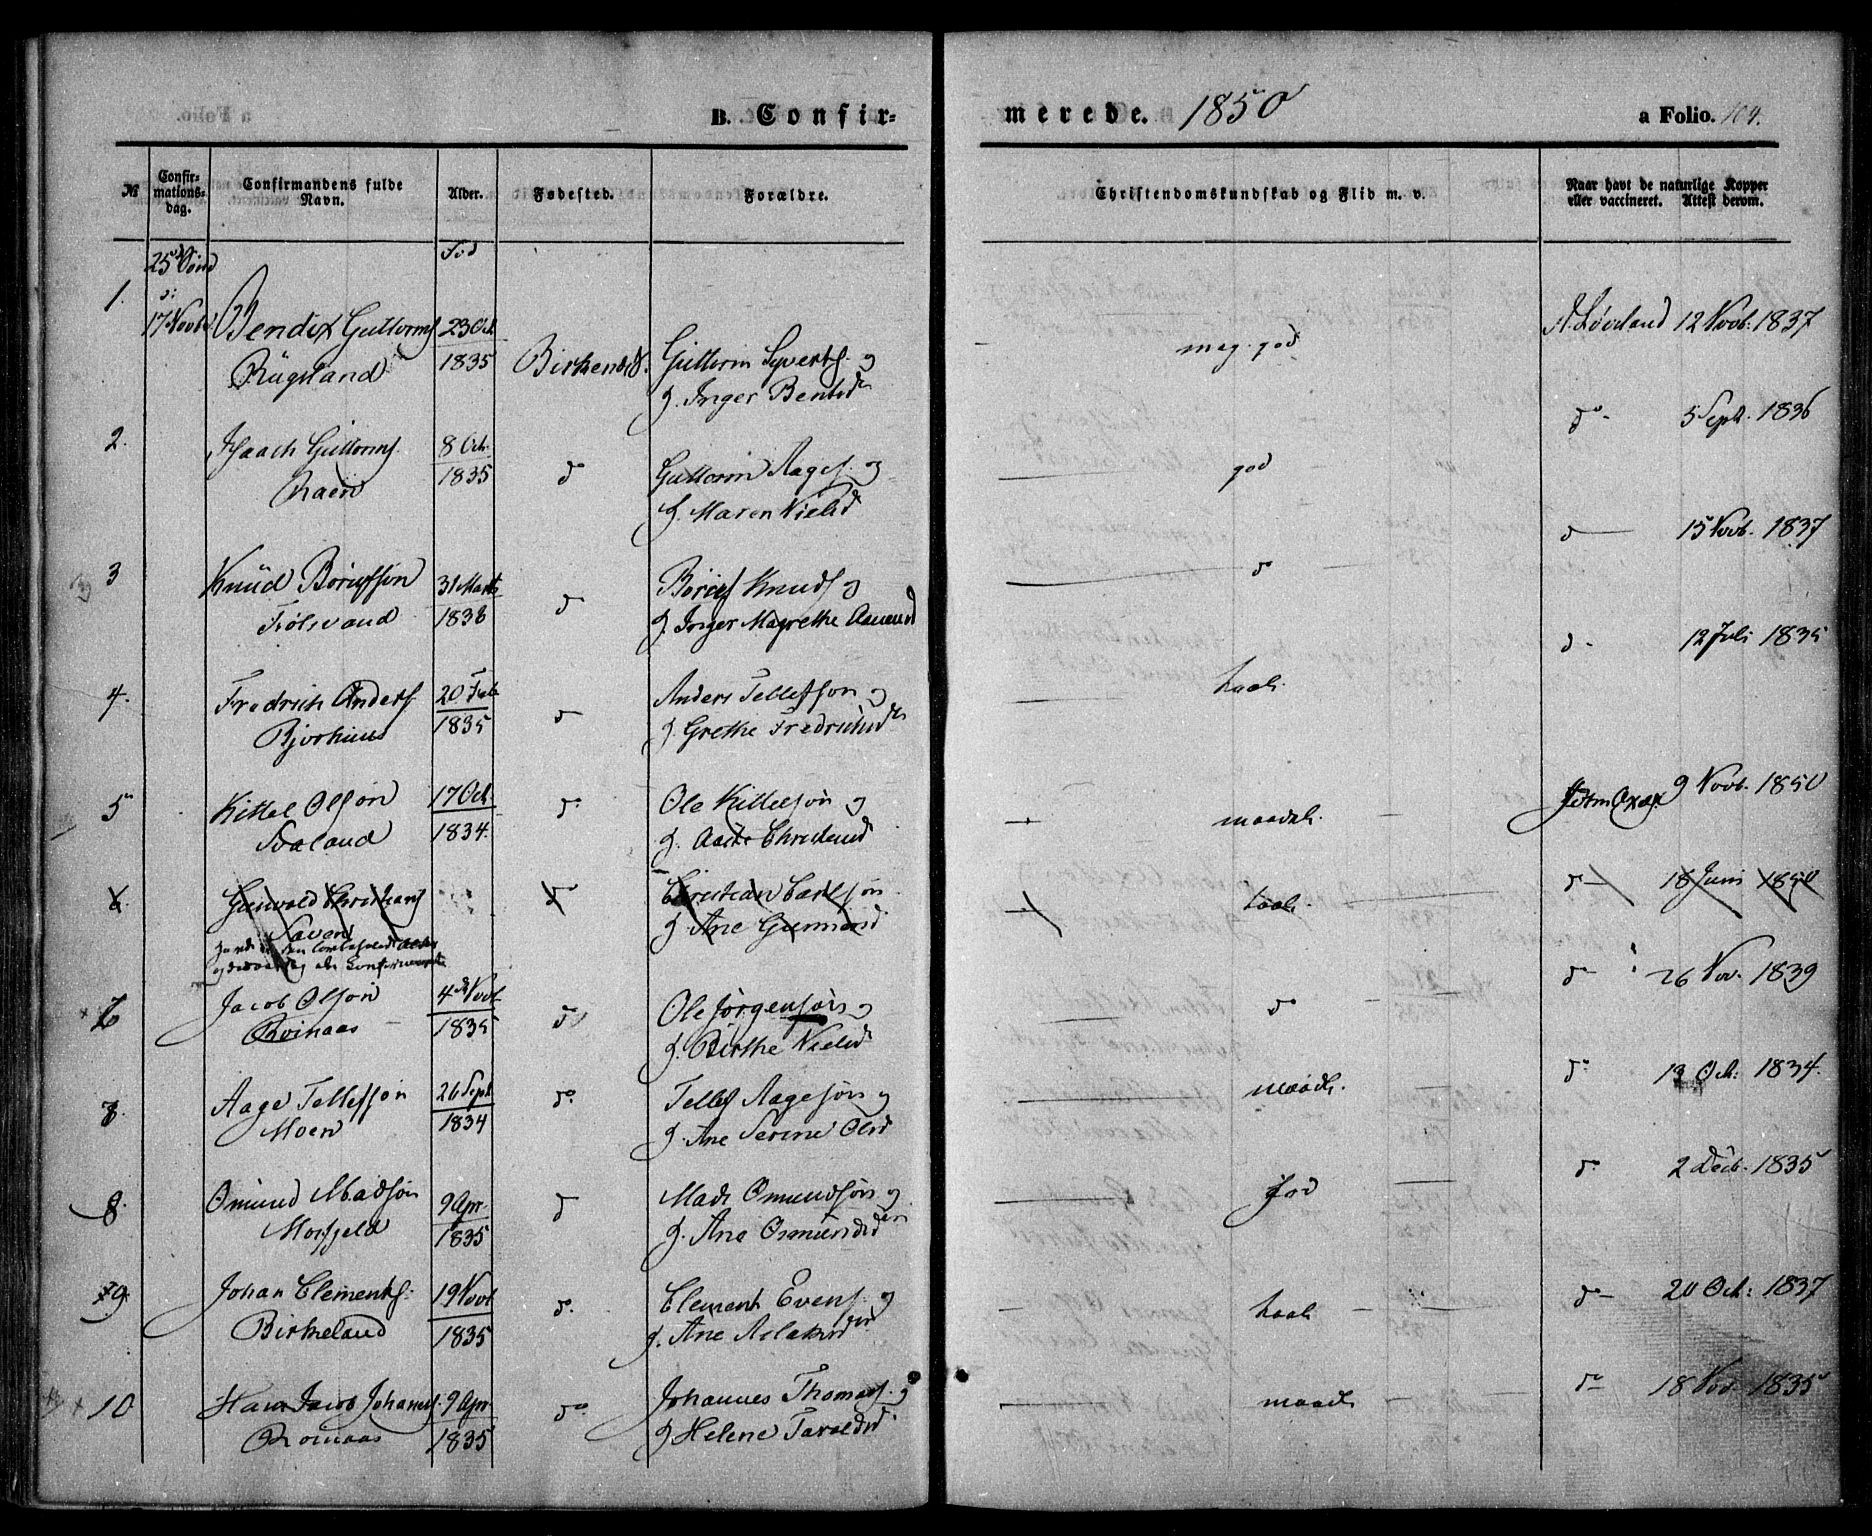 B. Confir-
merede. 1850
a Folio. 104.
№
Confir-
mations-
dag.
Confirmandens fulde
Navn.
Alder.
Fødested.
Forældre.
Christendomskundskab og Flid m. v.
Naar havt de naturlige Kopper
eller vaccineret. Attest derom.
Fød
1.
17 Novbr
Bendix Guttorms
23 Oct
1835
Birkenes.
Guttorm Syverts. og
H. Inger Bentsd
meg. god
A. Løvland 12 Novb. 1837
2.
Isaach Guttorms.
Raen
8 Oct.
1835
do
Guttorm Aages. og
H. Maren Nielsd
god
do - 5 Sept. 1836
3
Knud Børufsøn
31 Marts
do
Knuds og
H. Inger Magrethe
do
do 15 Novb. 1837
4.
Fredrich Anders
20 Feb
1835
do
Anders Tellefsøn og
H. Grethe Fredrichsd
taal.
do - 12 Juli 1835
5
Kittel Olsøn
Svaland
17 Oct
1834.
do
Ole Kittelsøn og
H. Aaste Christensd
maadel.
9 Novb. 1850
6
Gunvald Christians
do
Christian Carlsøn
H. Ane Gunnersd
taal.
do 18 Juni 1850
Jacob Olsøn
4de Novb
1835
do
Ole Jørgensøn og
H. Birthe Nielsd
do
do 26 Nov. 1839
Aage Tellefsøn
Moen
26 Sept
1834
do
Tellef Aagesøn og
H. Ane Serine Olsd
maadl.
do 13 Oct: 1834.
8.
Omund Madsøn
Mosfjeld
9 Apr.
1835
do
Mads Omundsøn og
H. Ane Osmundsd
god
do 2 Decb. 1835
9
Johan Clements.
Birkeland
19 Novb
1835
do.
Clement Evens. og
H. Ane Aslaksd
taal.
do 20 Oct: 1837
10
Hans Jacob Johannes.
9 Apr.
1835
do
Johannes Thomas. og
H. Helene Taraldsd
maadl.
do 18 Nov. 1835